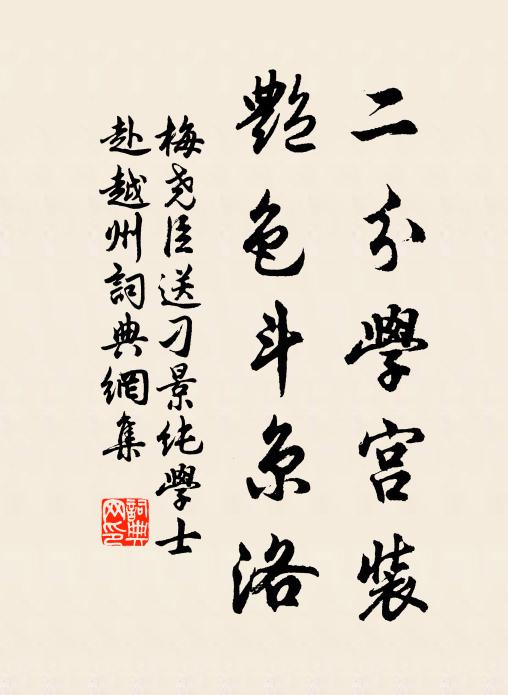 二分學宮裝
艷色斗京洛
梅尧臣送刁景純學士
赴越州詞典網集
詞典网印